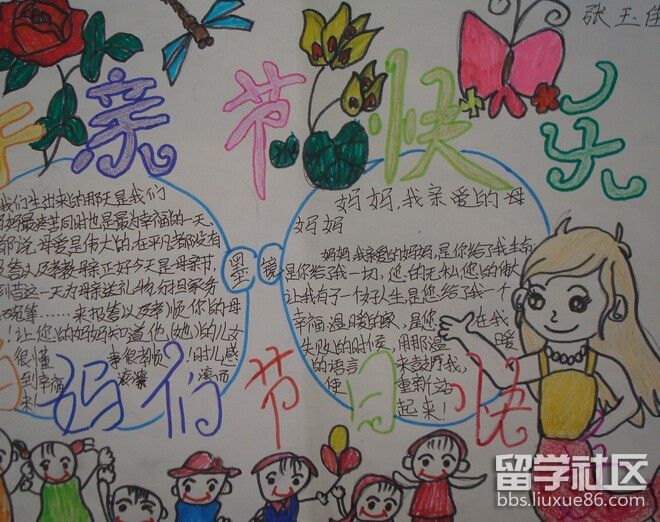 张玉佳
亲节快乐
我们生出来的那天是我们
妈最辛苦同时也是最为幸福的一天,
都说母爱是伟大的,在平凡都没有
母亲正好今天是母亲节,
这一天为母亲送礼物,
等……来报答以及孝顺你的母
!让您的妈妈知道他(她)的儿女
很懂
事很孝顺!时儿感
到幸福
滚滚
滚而
来!
墨镜
妈妈,我亲爱的母
妈妈
妈妈,我亲爱的妈妈,是你给了我生命,
是你给了我一切,您的无私您的伟大
让我有了一个好人生,是您给了我一个
幸福温暖的家,是您
在我
失败的时候,用那温
暖
的语言
来鼓励我,
使
重新站
起来!
妈们节日快
留学社区
bbs.liuxue86.com